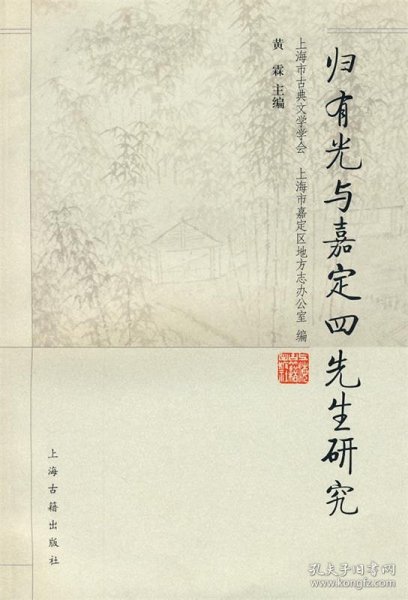 归有光与嘉定四先生研究
上海市古典文学学会 上海市嘉定区地方志办公室 编
黄霖 主编
上海古籍出版社
孔夫子旧书网
book.kongfz.com